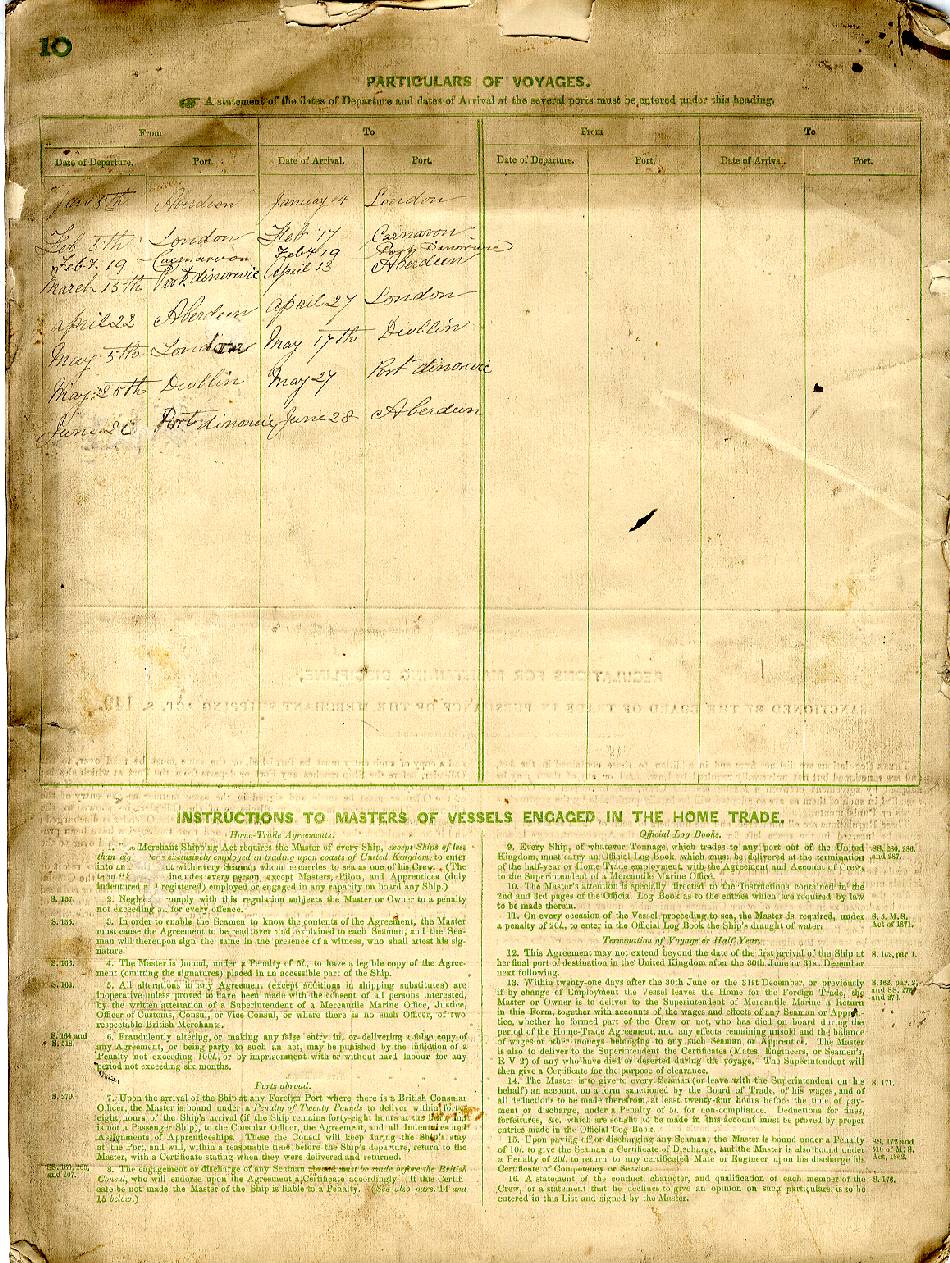 10
PARTICULARS OF VOYAGES.
A statement of the dates of Departure and dates of Arrival at the several ports must be entered under this heading.
From To From To
Date of Departure. Port. Date of Arrival. Port. Date of Departure. Port. Date of Arrival. Port.
Aberdeen January 14 London
London Feb 17 Carnarvon
Feby. 19 Carnarvon Feby 19 Port Dinorwic
March 15th Port dinorwic April 13 Aberdeen
April 22 Aberdeen April 27 London
May 5th London May 17th Dublin
May 25th Dublin May 27 Port dinorwic
June Port dinorwic June 28 Aberdeen
INSTRUCTIONS TO MASTERS OF VESSELS ENGAGED IN THE HOME TRADE.
Home-Trade Agreements.
Merchant Shipping Act requires the Master of every Ship, except Ships of less
employed in trading upon coasts of United Kingdom, to enter
into an with every Seaman whom he carries to sea as one of his Crew. (The
includes every person, except Masters, Pilots, and Apprentices (duly
indentured registered) employed or engaged in any capacity on board any Ship.)
S. 157.
2. Neglect comply with this regulation subjects the Master or Owner to a penalty
not exceeding for every offence.
S. 155.
3. In order to enable the Seaman to know the contents of the Agreement, the Master
must cause the Agreement to be read over and explained to each Seaman, and the Sea-
man will thereupon sign the same in the presence of a witness, who shall attest his sig-
nature.
4. The Master is bound, under a Penalty of 5l., to have a legible copy of the Agree-
ment (omitting the signatures) placed in an accessible part of the Ship.
S. 163.
5. All alterations in any Agreement (except additions in shipping substitutes) are
inoperative unless proved to have been made with the consent of all persons interested,
by the written attestation of a Superintendent of a Mercantile Marine Office, Justice,
Officer of Customs, Consul, or Vice Consul, or where there is no such Officer, of two
respectable British Merchants.
6. Fraudulently altering, or making any false entry in, or delivering a false copy of
any Agreement, or being party to such an act, may be punished by the infliction of a
Penalty not exceeding 100l., or by imprisonment with or without hard labour for any
period not exceeding six months.
Ports abroad.
S. 279.
7. Upon the arrival of the Ship at any Foreign Port where there is a British Consular
Officer, the Master is bound under a Penalty of Twenty Pounds to deliver within forty-
eight hours of the Ship's arrival (if the Ship remains forty-eight hours at the Port and
is not a Passenger Ship), to the Consular Officer, the Agreement, and all Indentures and
Assignments of Apprenticeships. These the Consul will keep during the Ship's stay
at the Port, and will, within a reasonable time before the Ship's departure, return to the
Master, with a Certificate stating when they were delivered and returned.
8. The engagement or discharge of any Seaman abroad must be made before the British
Consul, who will endorse upon the Agreement a Certificate accordingly. If this Certifi-
cate be not made the Master of the Ship is liable to a Penalty. (See also pars. 14 and
15 below.)
Official Log Books.
9. Every Ship, of whatever Tonnage, which trades to any port out of the United
Kingdom, must carry an Official Log Book, which must be delivered at the termination
of the half-year or Home Trade employment with the Agreement and Account of Crews
to the Superintendent of a Mercantile Marine Office.
10. The Master's attention is specially directed to the Instructions contained in the
2nd and 3rd pages of the Official Log Book as to the entries which are required by law
to be made therein.
11. On every occasion of the Vessel proceeding to sea, the Master is required, under
a penalty of 20l., to enter in the Official Log Book the Ship's draught of water.
S. 5, M.S.
Act of 1871.
Termination of Voyage or Half Year.
12. This Agreement may not extend beyond the date of the first arrival of the Ship at
her final port of destination in the United Kingdom after the 30th June or 31st December
next following.
13. Within twenty-one days after the 30th June or the 31st December, or previously
if by change of Employment the Vessel leaves the Home for the Foreign Trade, the
Master or Owner is to deliver to the Superintendent of Mercantile Marine a Return
in this Form, together with accounts of the wages and effects of any Seaman or Appren-
tice, whether he formed part of the Crew or not, who has died on board during the
period of the Home-Trade Agreement, and any effects remaining unsold and the balance
of wages or other moneys belonging to any such Seaman or Apprentice. The Master
is also to deliver to the Superintendent the Certificates (Mates, Engineers, or Seamen's,
R V 2) of any who have died or deserted during the voyage. The Superintendent will
then give a Certificate for the purpose of clearance.
14. The Master is to give to every Seaman (or leave with the Superintendent on his
behalf) an account, on a form sanctioned by the Board of Trade, of his wages, and of
all deductions to be made therefrom, at least twenty-four hours before the time of pay-
ment or discharge, under a Penalty of 5l. for non-compliance. Deductions for fines,
forfeitures, &c., which are sought to be made in this account must be proved by proper
entries made in the Official Log Book.
S. 171.
15. Upon paying off or discharging any Seaman, the Master is bound under a Penalty
of 10l. to give the Seaman a Certificate of Discharge, and the Master is also bound under
a Penalty of 20l. to return to any certificated Mate or Engineer upon his discharge his
Certificate of Competency or Service.
16. A statement of the conduct, character, and qualification of each member of the
Crew, or a statement that he declines to give an opinion on such particulars, is to be
entered in this List and signed by the Master.
S. 176.